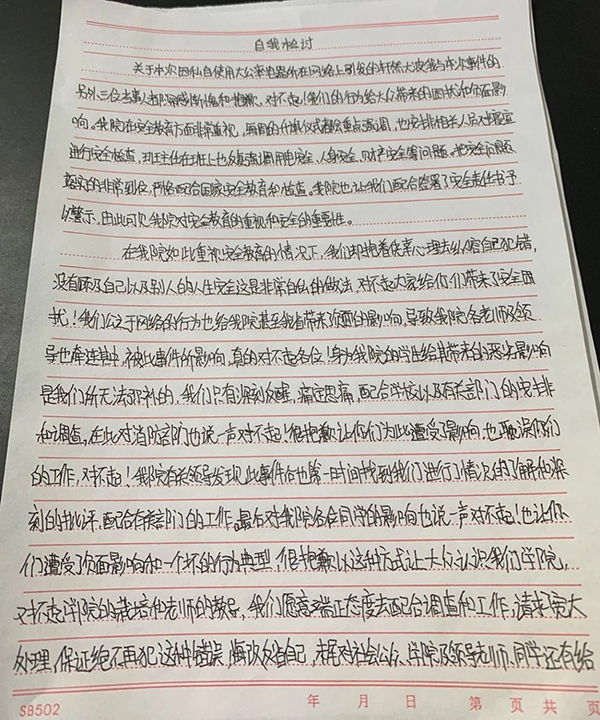 自我检讨
关于本次因私自使用大公率电器所在网络上引发的轩然大波我与本次事件的
另外三位当事人都深感懊悔和抱歉,对不起!我们的行为给大众带来的困扰和负面影
响。我院在安全教育方面非常重视,每周的升旗仪式都会重点强调,也安排相关人员对寝室
进行安全检查,班主任在班上也反复强调用电安全、人身安全、财产安全等问题,把安全问题
落实的非常到位,严格配合国家安全教育和检查。我院也让我们配合签署了安全责任书予
以警示,由此可见我院对安全教育的重视和安全的重要性。
在我院如此重视安全教育的情况下,我们却抱着侥幸心理去纵容自己犯错,
没有顾及自己以及别人的人生安全这是非常自私的做法,对不起大家给你们带来了安全困
扰!我们公之于网络的行为也给我院甚至我省带来负面的影响,导致我院各老师及领
导也牵连其中,被此事件所影响,真的对不起各位!身为我院的学生给其带来的恶劣影响
是我们所无法弥补的,我们只有深刻反醒,痛定思痛,配合学校以及有关部门的安排
和调查,在此对消防部门也说一声对不起!很抱歉让你们为此遭受了影响,也耽误你们
的工作,对不起!我院有关领导发现此事件后也第一时间找到我们进行了情况的了解和深
刻的批评,配合有关部门的工作。最后对我院各位同学的影响也说一声对不起!也让你
们遭受了负面影响和一个坏的行为典型,很抱歉以这种方式让大众认识我们学院,
对不起学院的栽培和老师的教导,我们愿意端正态度去配合调查和工作,请求宽大
处理,保证绝不再犯这种错误,悔改反省自己,未尾对社会公众、学院及领导老师、同学还有给
SB502 年 月 日 第 页 共 页